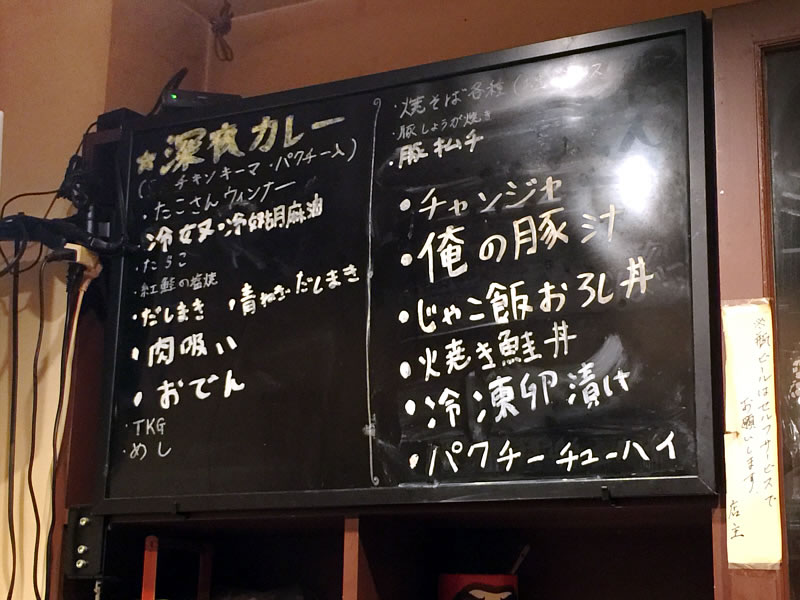 ★深夜カレー
(チキンキーマ・パクチー入)
・たこさんウィンナー
・冷奴・冷奴胡麻油
・たらこ
・紅鮭の塩焼
・だしまき ・青ねぎだしまき
・肉吸い
・おでん
・TKG
・めし
・焼そば各種(
・豚しょうが焼き
・豚キムチ
・チャンジャ
・俺の豚汁
・じゃこ飯おろし丼
・焼き鮭丼
・冷凍卵漬け
・パクチーチューハイ
ビールはセルフサービスで
お願いします。
店主